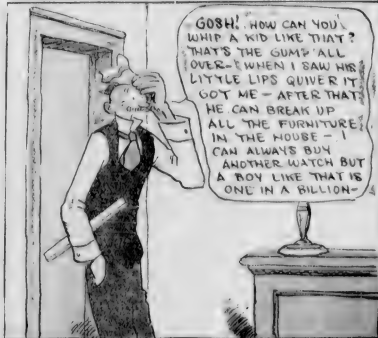 GOSH! HOW CAN YOU
WHIP A KID LIKE THAT?
THAT'S THE GUMP ALL
OVER- WHEN I SAW HIS
LITTLE LIPS QUIVER IT
GOT ME - AFTER THAT
HE CAN BREAK UP
ALL THE FURNITURE
IN THE HOUSE - I
CAN ALWAYS BUY
ANOTHER WATCH BUT
A BOY LIKE THAT IS
ONE IN A BILLION-